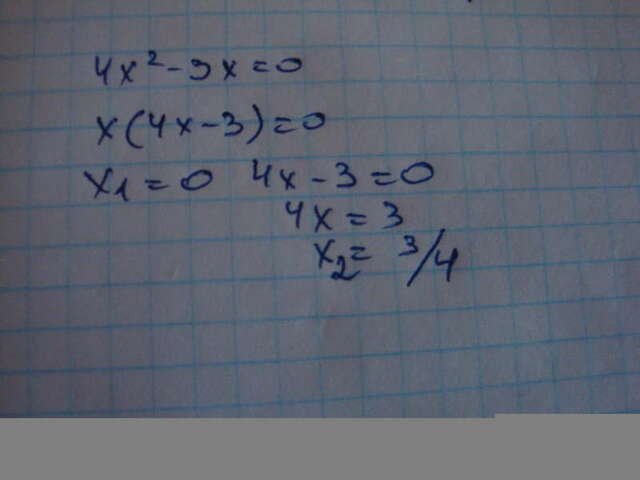 4x² - 3x = 0
x(4x - 3) = 0
x₁ = 0 4x - 3 = 0
4x = 3
x₂ = 3/4